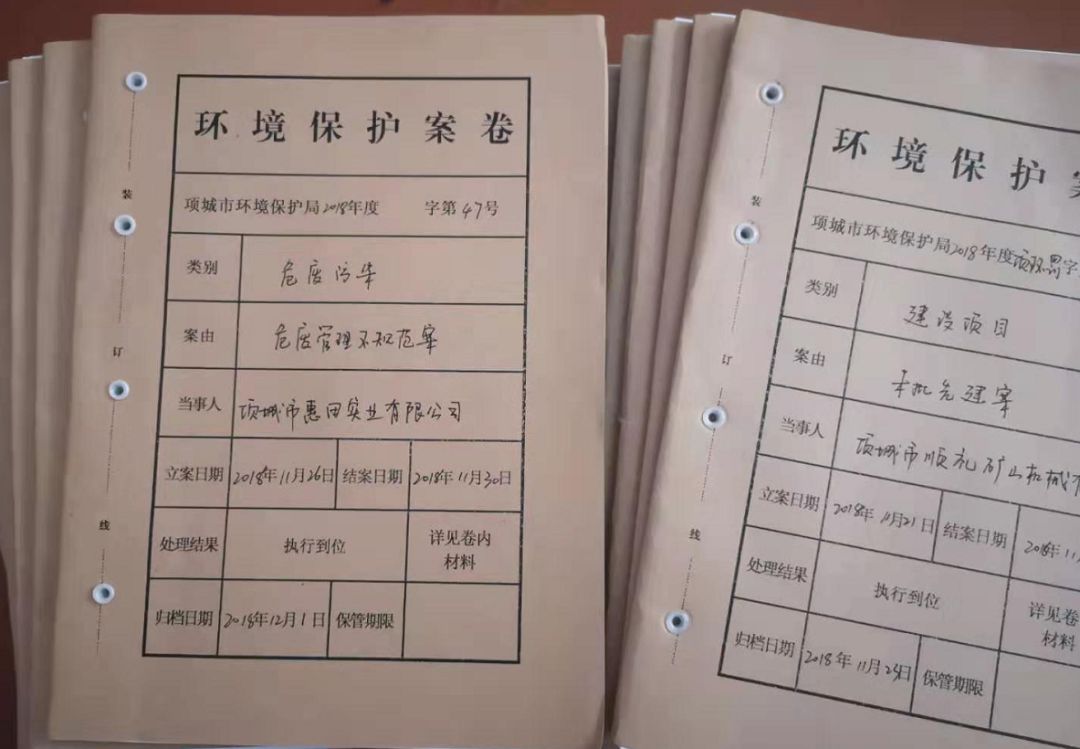 环境保护案卷
项城市环境保护局2018年度 字第47号
类别 危废污染
案由 危废管理不规范案
当事人 项城市惠田实业有限公司
立案日期 2018年11月26日 结案日期 2018年11月30日
处理结果 执行到位 详见卷内
材料
归档日期 2018年12月1日 保管期限
装
订
线
环境保护
项城市环境保护局2018年度项环罚字
类别 建设项目
案由 未批先建案
当事人 项城市顺礼矿山机械
立案日期 2018年11月21日 结案日期 2018年11
处理结果 执行到位 详见卷
材料
归档日期 2018年11月29日 保管期限
装
订
线